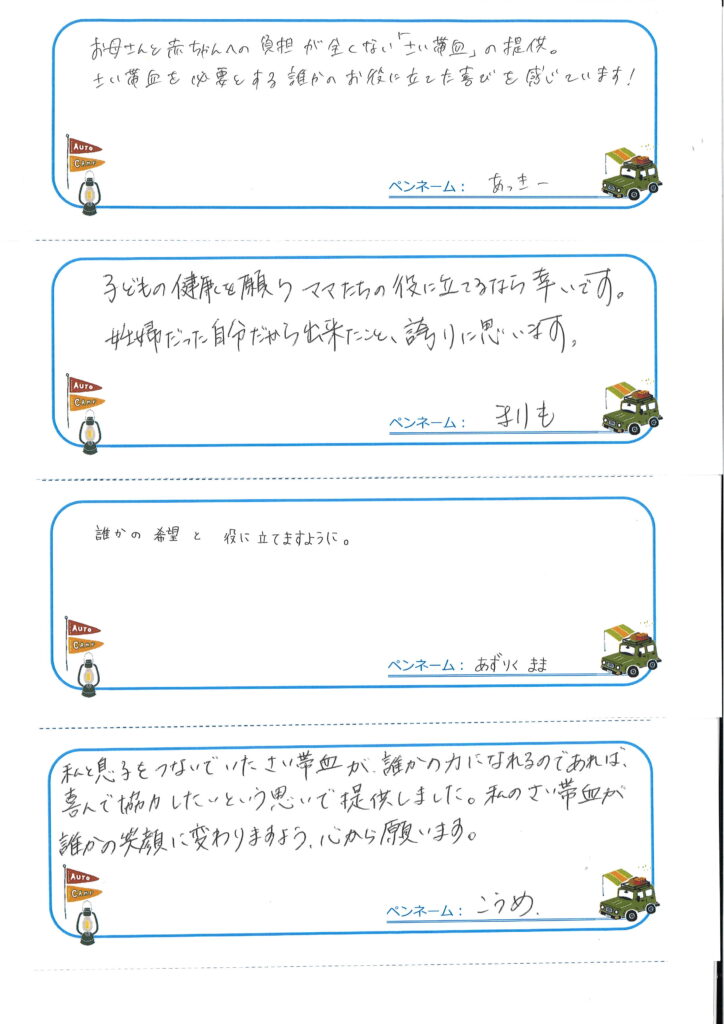 お母さんと赤ちゃんへの負担が全くない「さい帯血」の提供。
さい帯血を必要とする誰かのお役に立てた喜びを感じています!
AUTO
CAMP
ペンネーム: あっきー
子どもの健康を願うママたちの役に立てるなら幸いです。
妊婦だった自分だから出来たこと、誇りに思います。
AUTO
CAMP
ペンネーム: まりも
誰かの 希望 と 役に立てますように。
AUTO
CAMP
ペンネーム: あずりく まま
私と息子をつないでいた さい帯血が、誰かの力になれるのであれば、
喜んで協力したいという思いで提供しました。私のさい帯血が
誰かの笑顔に変わりますよう、心から願います。
AUTO
CAMP
ペンネーム: こうめ.